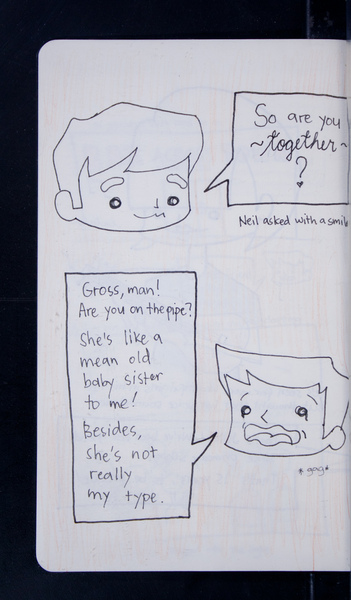 So are you
~together~
?
Neil asked with a smile
Gross, man!
Are you on the pipe?
She's like a
mean old
baby sister
to me!
Besides,
she's not
really
my type.
*gag*